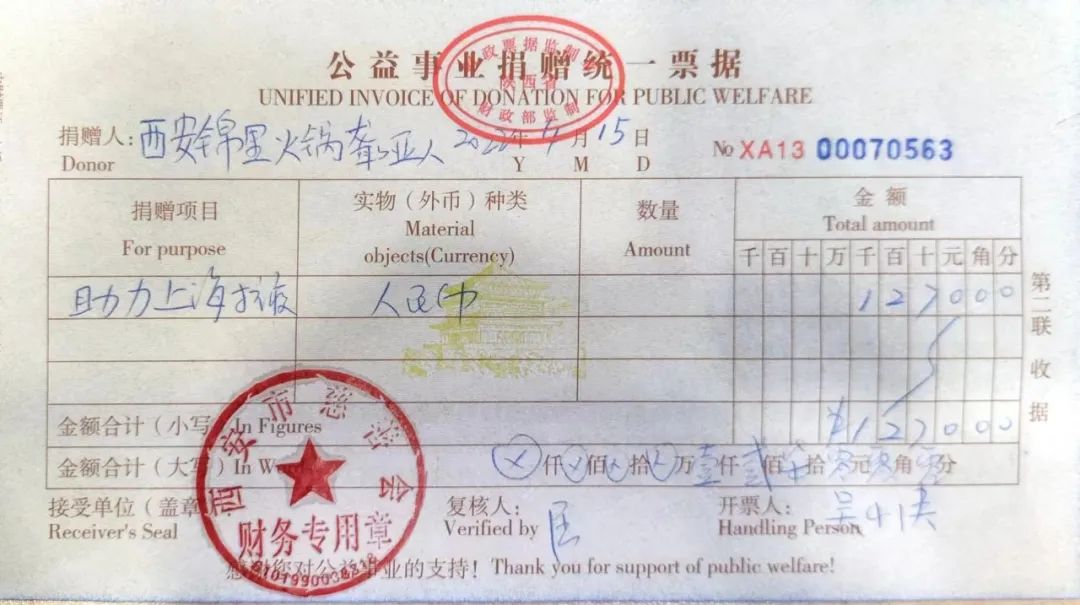 公益事业捐赠统一票据
财政票据监制
陕西省
财政部监制
UNIFIED INVOICE OF DONATION FOR PUBLIC WELFARE
捐赠人: 西安锦里火锅聋哑人 2022年4月15日
Donor Y M D
No XA13 00070563
捐赠项目 实物（外币）种类 数量 金额
For purpose Material objects(Currency) Amount Total amount
千 百 十 万 千 百 十 元 角 分
助力上海抗疫 人民币 127000
金额合计（小写）In Figures ¥127000
金额合计（大写）In W ⊗仟⊗佰⊗拾⊗万壹仟贰佰柒拾零元零角零分
接受单位（盖章） 复核人: 开票人:
Receiver's Seal Verified by Handling Person
西安市慈善会
财务专用章
感谢您对公益事业的支持！ Thank you for support of public welfare!
第二联 收据